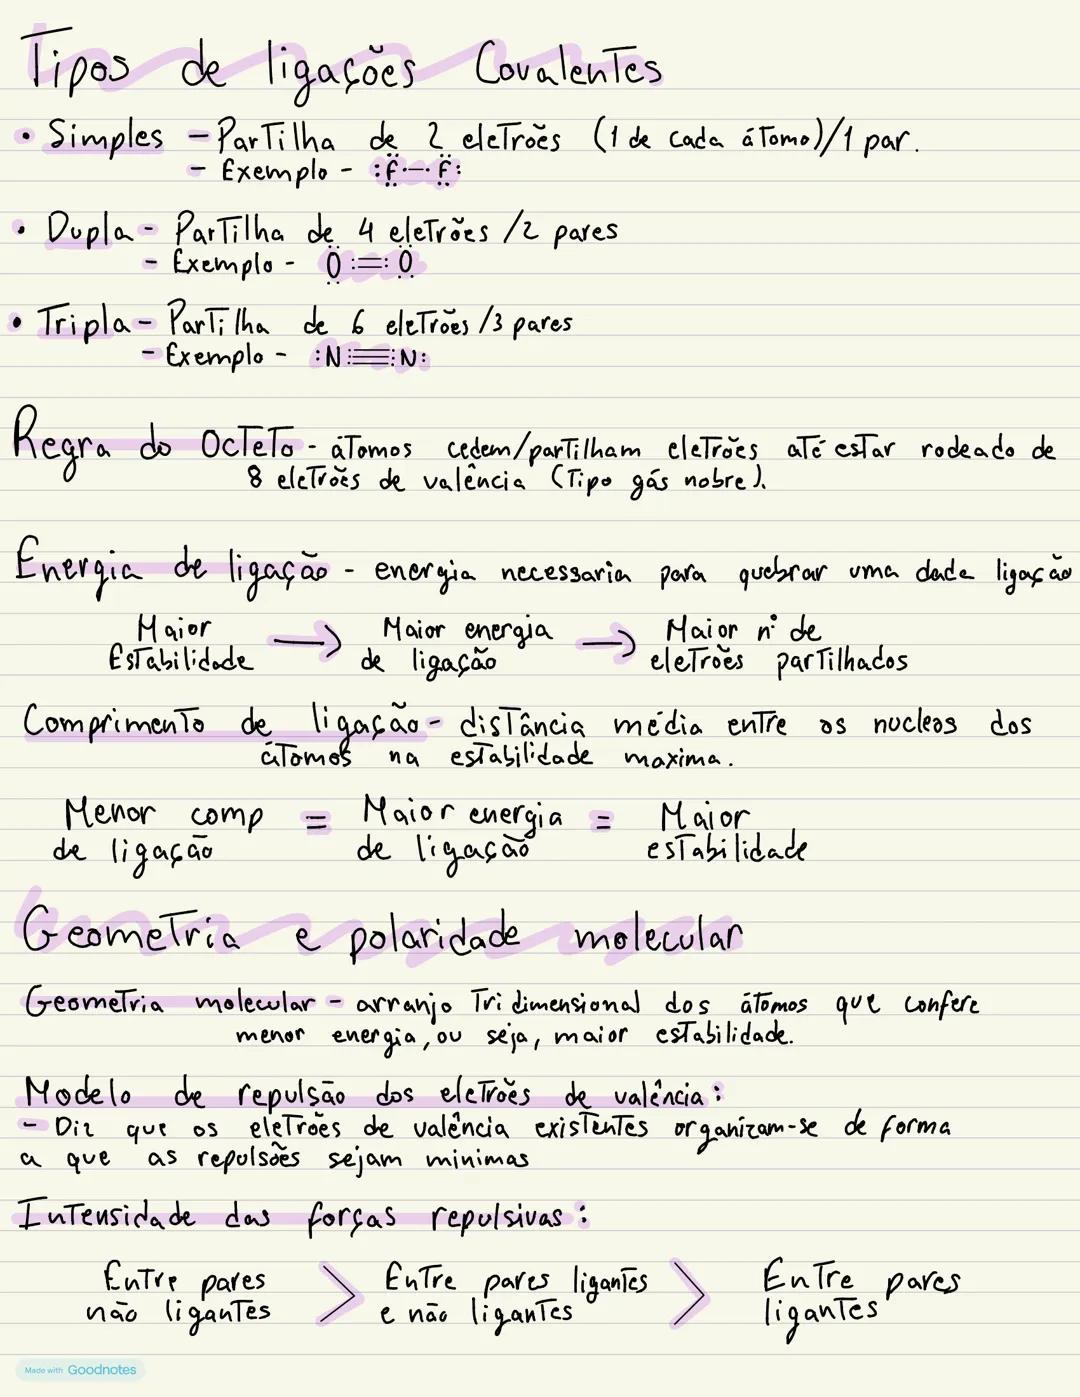 Tipos de ligações Covalentes
• Simples - Partilha de 2 eletrões (1 de cada átomo)/1 par.
- Exemplo - :F·—·F:
• Dupla - Partilha de 4 eletrões /2 pares
- Exemplo - O:=:O
• Tripla - Partilha de 6 eletrões /3 pares
- Exemplo - :N⋮≡⋮N:
Regra do Octeto - átomos cedem/partilham eletrões até estar rodeado de
8 eletrões de valência (Tipo gás nobre).
Energia de ligação - energia necessaria para quebrar uma dada ligação
Maior → Maior energia → Maior nº de
Estabilidade de ligação eletrões partilhados
Comprimento de ligação - distância média entre os nucleos dos
átomos na estabilidade maxima.
Menor comp = Maior energia = Maior
de ligação de ligação estabilidade
Geometria e polaridade molecular
Geometria molecular - arranjo Tridimensional dos átomos que confere
menor energia, ou seja, maior estabilidade.
Modelo de repulsão dos eletrões de valência:
- Diz que os eletrões de valência existentes organizam-se de forma
a que as repulsões sejam minimas
Intensidade das forças repulsivas:
Entre pares > Entre pares ligantes > Entre pares
não ligantes e não ligantes ligantes
Made with Goodnotes